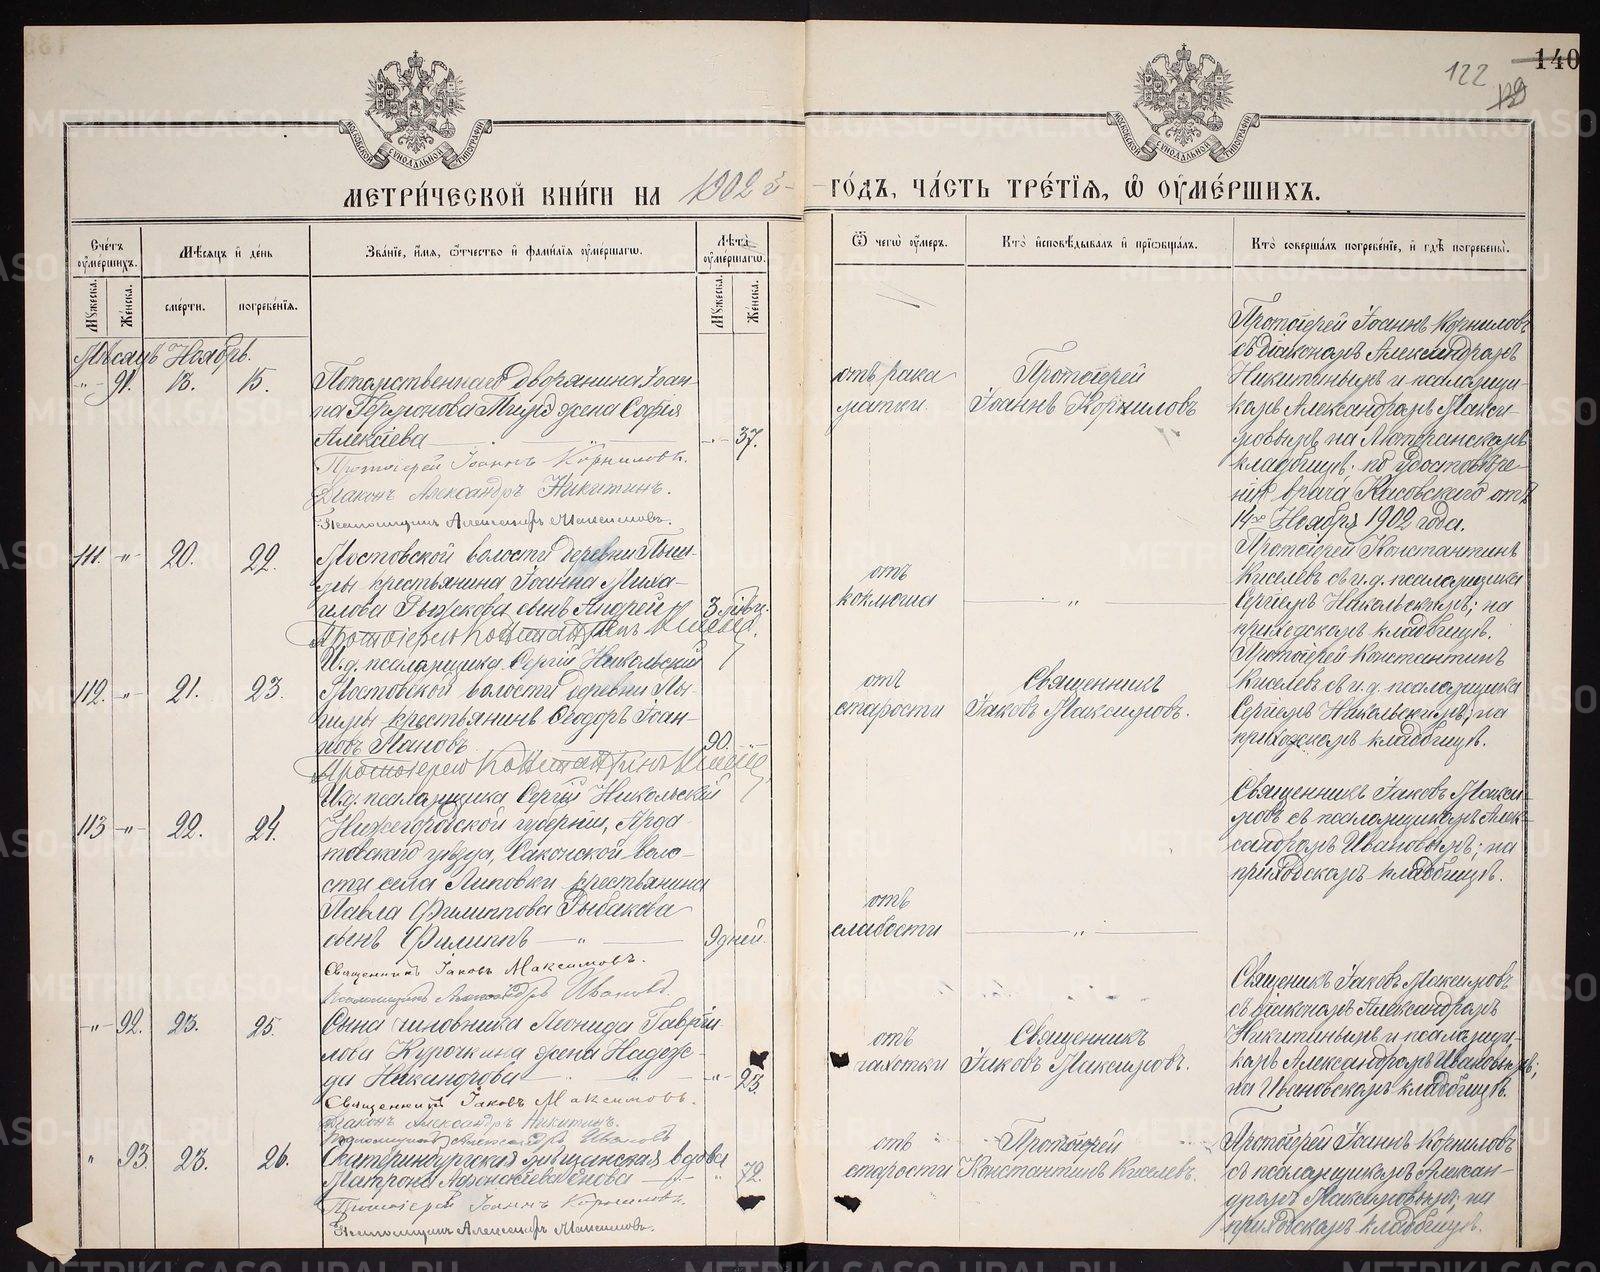 140
122
МЕТРИ́ЧЕСКОЙ КНИ́ГИ НА 1902 й ГО́ДЪ, ЧА́СТЬ ТРЕ́ТЇѦ, Ѽ ОУ҆МЕ́РШИХЪ.
Сче́тъ оу҆ме́ршихъ.
Мѣ́сяцъ и҆ де́нь
Зва́нїе, и҆́мя, ѻ҆́тчество и҆ фами́лїя оу҆ме́ршагѡ.
Лѣ́та оу҆ме́ршагѡ.
Ѿ чегѡ̀ оу҆́меръ.
Кто̀ и҆сповѣ́дывалъ и҆ прїѡбща́лъ.
Кто̀ соверша́лъ погребе́нїе, и҆ гдѣ̀ погребены̀.
Му́жеска.
Же́нска.
сме́рти.
погребе́нїя.
Му́жеска.
Же́нска.
Мѣсяцъ Ноябрь.
-"- 91. 13. 15.
Потомственнаго дворянина Іоан-
на жена Софія
Алексіева -"- 37.
Протоіерей Іоаннъ Корниловъ.
Діаконъ Александръ Никитинъ.
Псаломщикъ Александръ Максимовъ.
отъ рака
матки.
Протоіерей
Іоаннъ Корниловъ
Протоіерей Іоаннъ Корниловъ
съ діакономъ Александромъ
Никитинымъ и псаломщи-
комъ Александромъ Макси-
мовымъ на Лютеранскомъ
кладбищѣ. по удостовѣре-
нію врача отъ
14го Ноября 1902 года.
111. -"- 20. 22.
Мостовской волости деревни Пыш-
мы крестьянина Іоанна Миха-
илова Рыжкова сынъ Андрей 3
Протоіерей Константинъ Киселевъ.
И.д. псаломщика Сергій Никольскій
отъ
коклюша
"
Протоіерей Константинъ
Киселевъ съ и.д. псаломщика
Сергіемъ Никольскимъ; на
приходскомъ кладбищѣ.
112. -"- 21. 23.
Мостовской волости деревни Пы-
шмы крестьянинъ Ѳеодоръ Іоан-
новъ Пановъ 90. -"-
Протоіерей Константинъ Киселевъ
И.д. псаломщика Сергій Никольскій
отъ
старости
Священникъ
Іаковъ Максимовъ.
Протоіерей Константинъ
Киселевъ съ и.д. псаломщика
Сергіемъ Никольскимъ; на
приходскомъ кладбищѣ.
113 -"- 22. 24.
Нижегородской губерніи, Арда-
товскаго уѣзда, Саконской воло-
сти села Липовки крестьянина
Павла Филиппова Рыбакова
сынъ Филиппъ " 9 дней.
Священникъ Іаковъ Максимовъ.
Псаломщикъ Александръ Ивановъ.
отъ
слабости
"
Священникъ Іаковъ Макси-
мовъ съ псаломщикомъ Алек-
сандромъ Ивановымъ; на
приходскомъ кладбищѣ.
-"- 92. 23. 25.
Сына чиновника Леонида Гаврїи-
лова Курочкина жена Надеж-
да Никандрова " -"- 23.
Священникъ Іаковъ Максимовъ.
Діаконъ Александръ Никитинъ.
Псаломщикъ Александръ Ивановъ
отъ
чахотки
Священникъ
Іаковъ Максимовъ.
Священикъ Іаковъ Максимовъ
съ діакономъ Александромъ
Никитинымъ и псаломщи-
комъ Александромъ Ивановымъ;
на Ивановскомъ кладбищѣ.
" 93 23. 26.
Екатеринбургская мѣщанская вдова
Матрона Аѳонасіева " 72.
Протоіерей Іоаннъ Корниловъ.
Псаломщикъ Александръ Максимовъ.
отъ
старости
Протоіерей
Константинъ Киселевъ.
Протоіерей Іоаннъ Корниловъ
съ псаломщикомъ Алексан-
дромъ Максимовымъ; на
приходскомъ кладбищѣ.